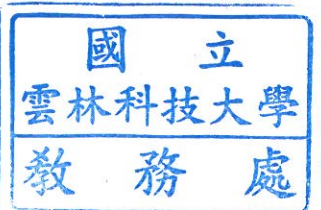 國立
雲林科技大學
教務處